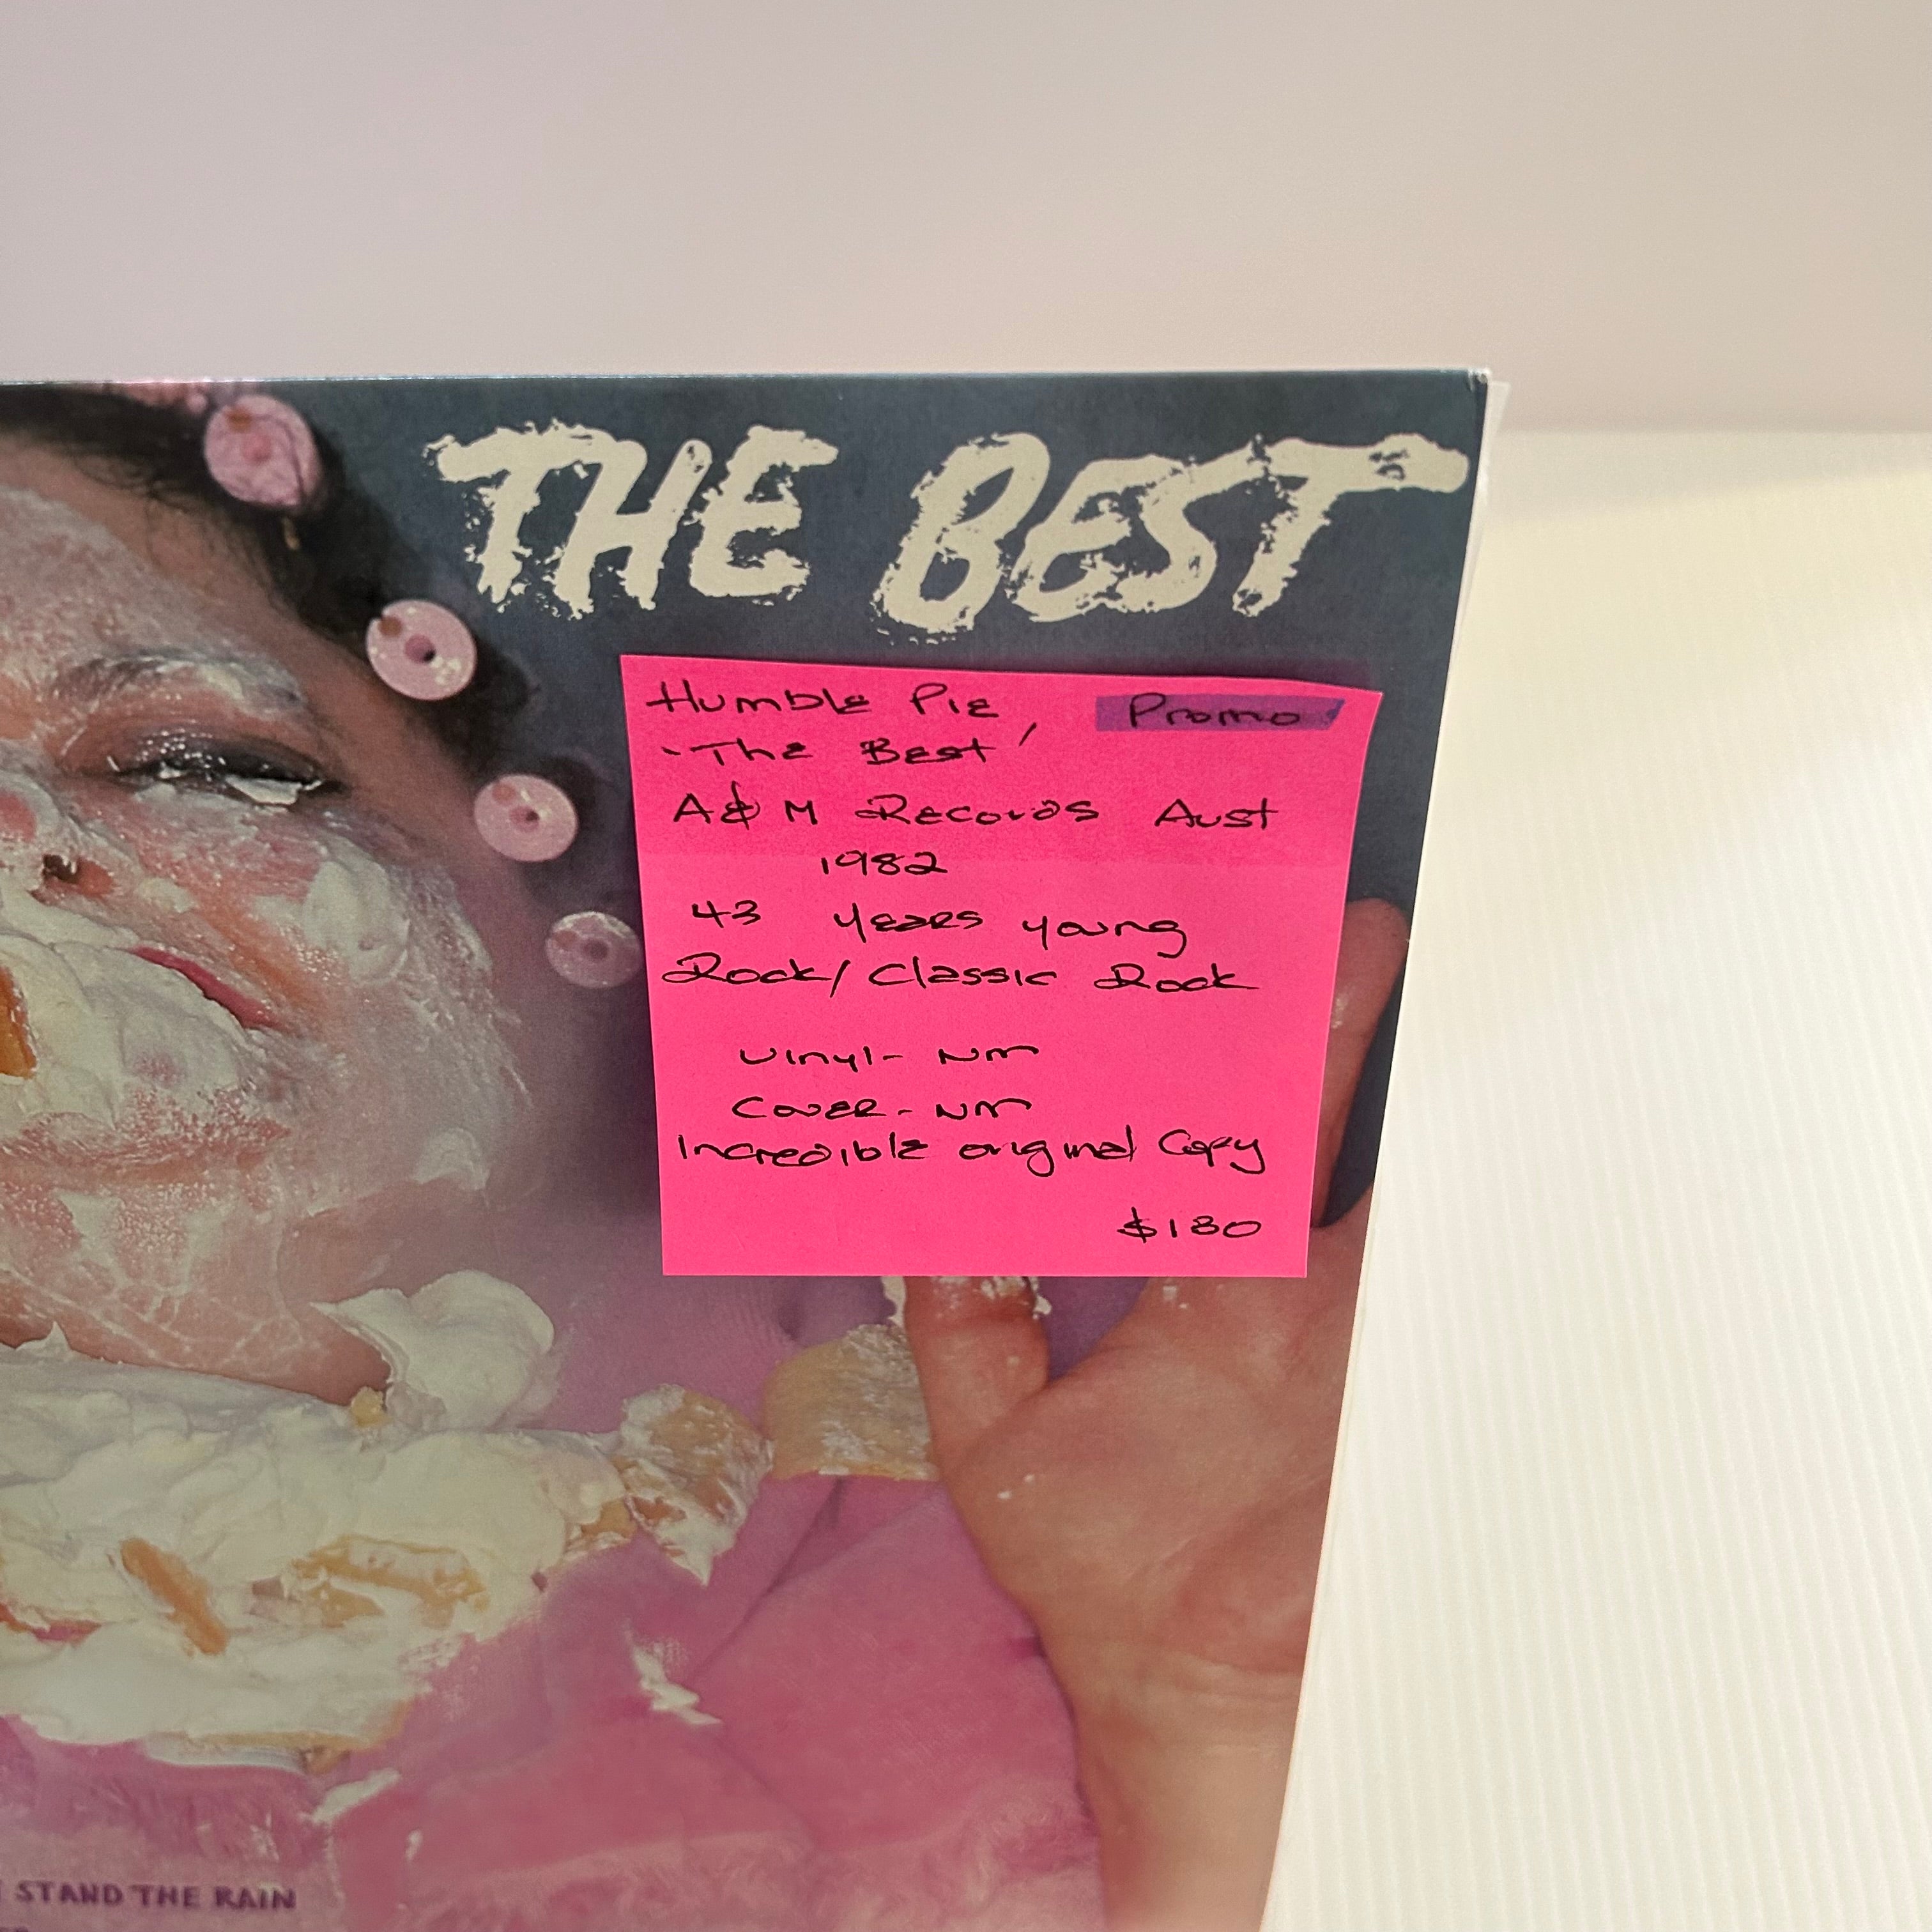 THE BEST
Humble Pie, Promo
'The Best'
A&M Records Aust
1982
43 years young
Rock/Classic Rock
Vinyl- NM
Cover- NM
Incredible original Copy
STAND THE RAIN